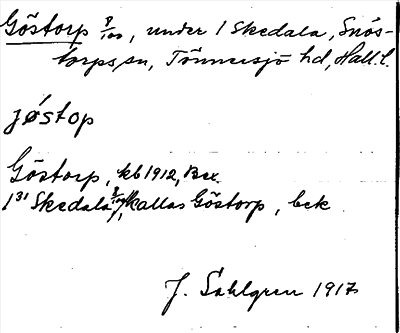 Göstorp 8/100, under 1 Skedala, Snös-
torps sn, Tönnersjö hd, Hall. l.
jǿstop
Göstorp, kb 1912, Bex.
1³¹ Skedala kallas Göstorp, bek
J. Sahlgren 1917